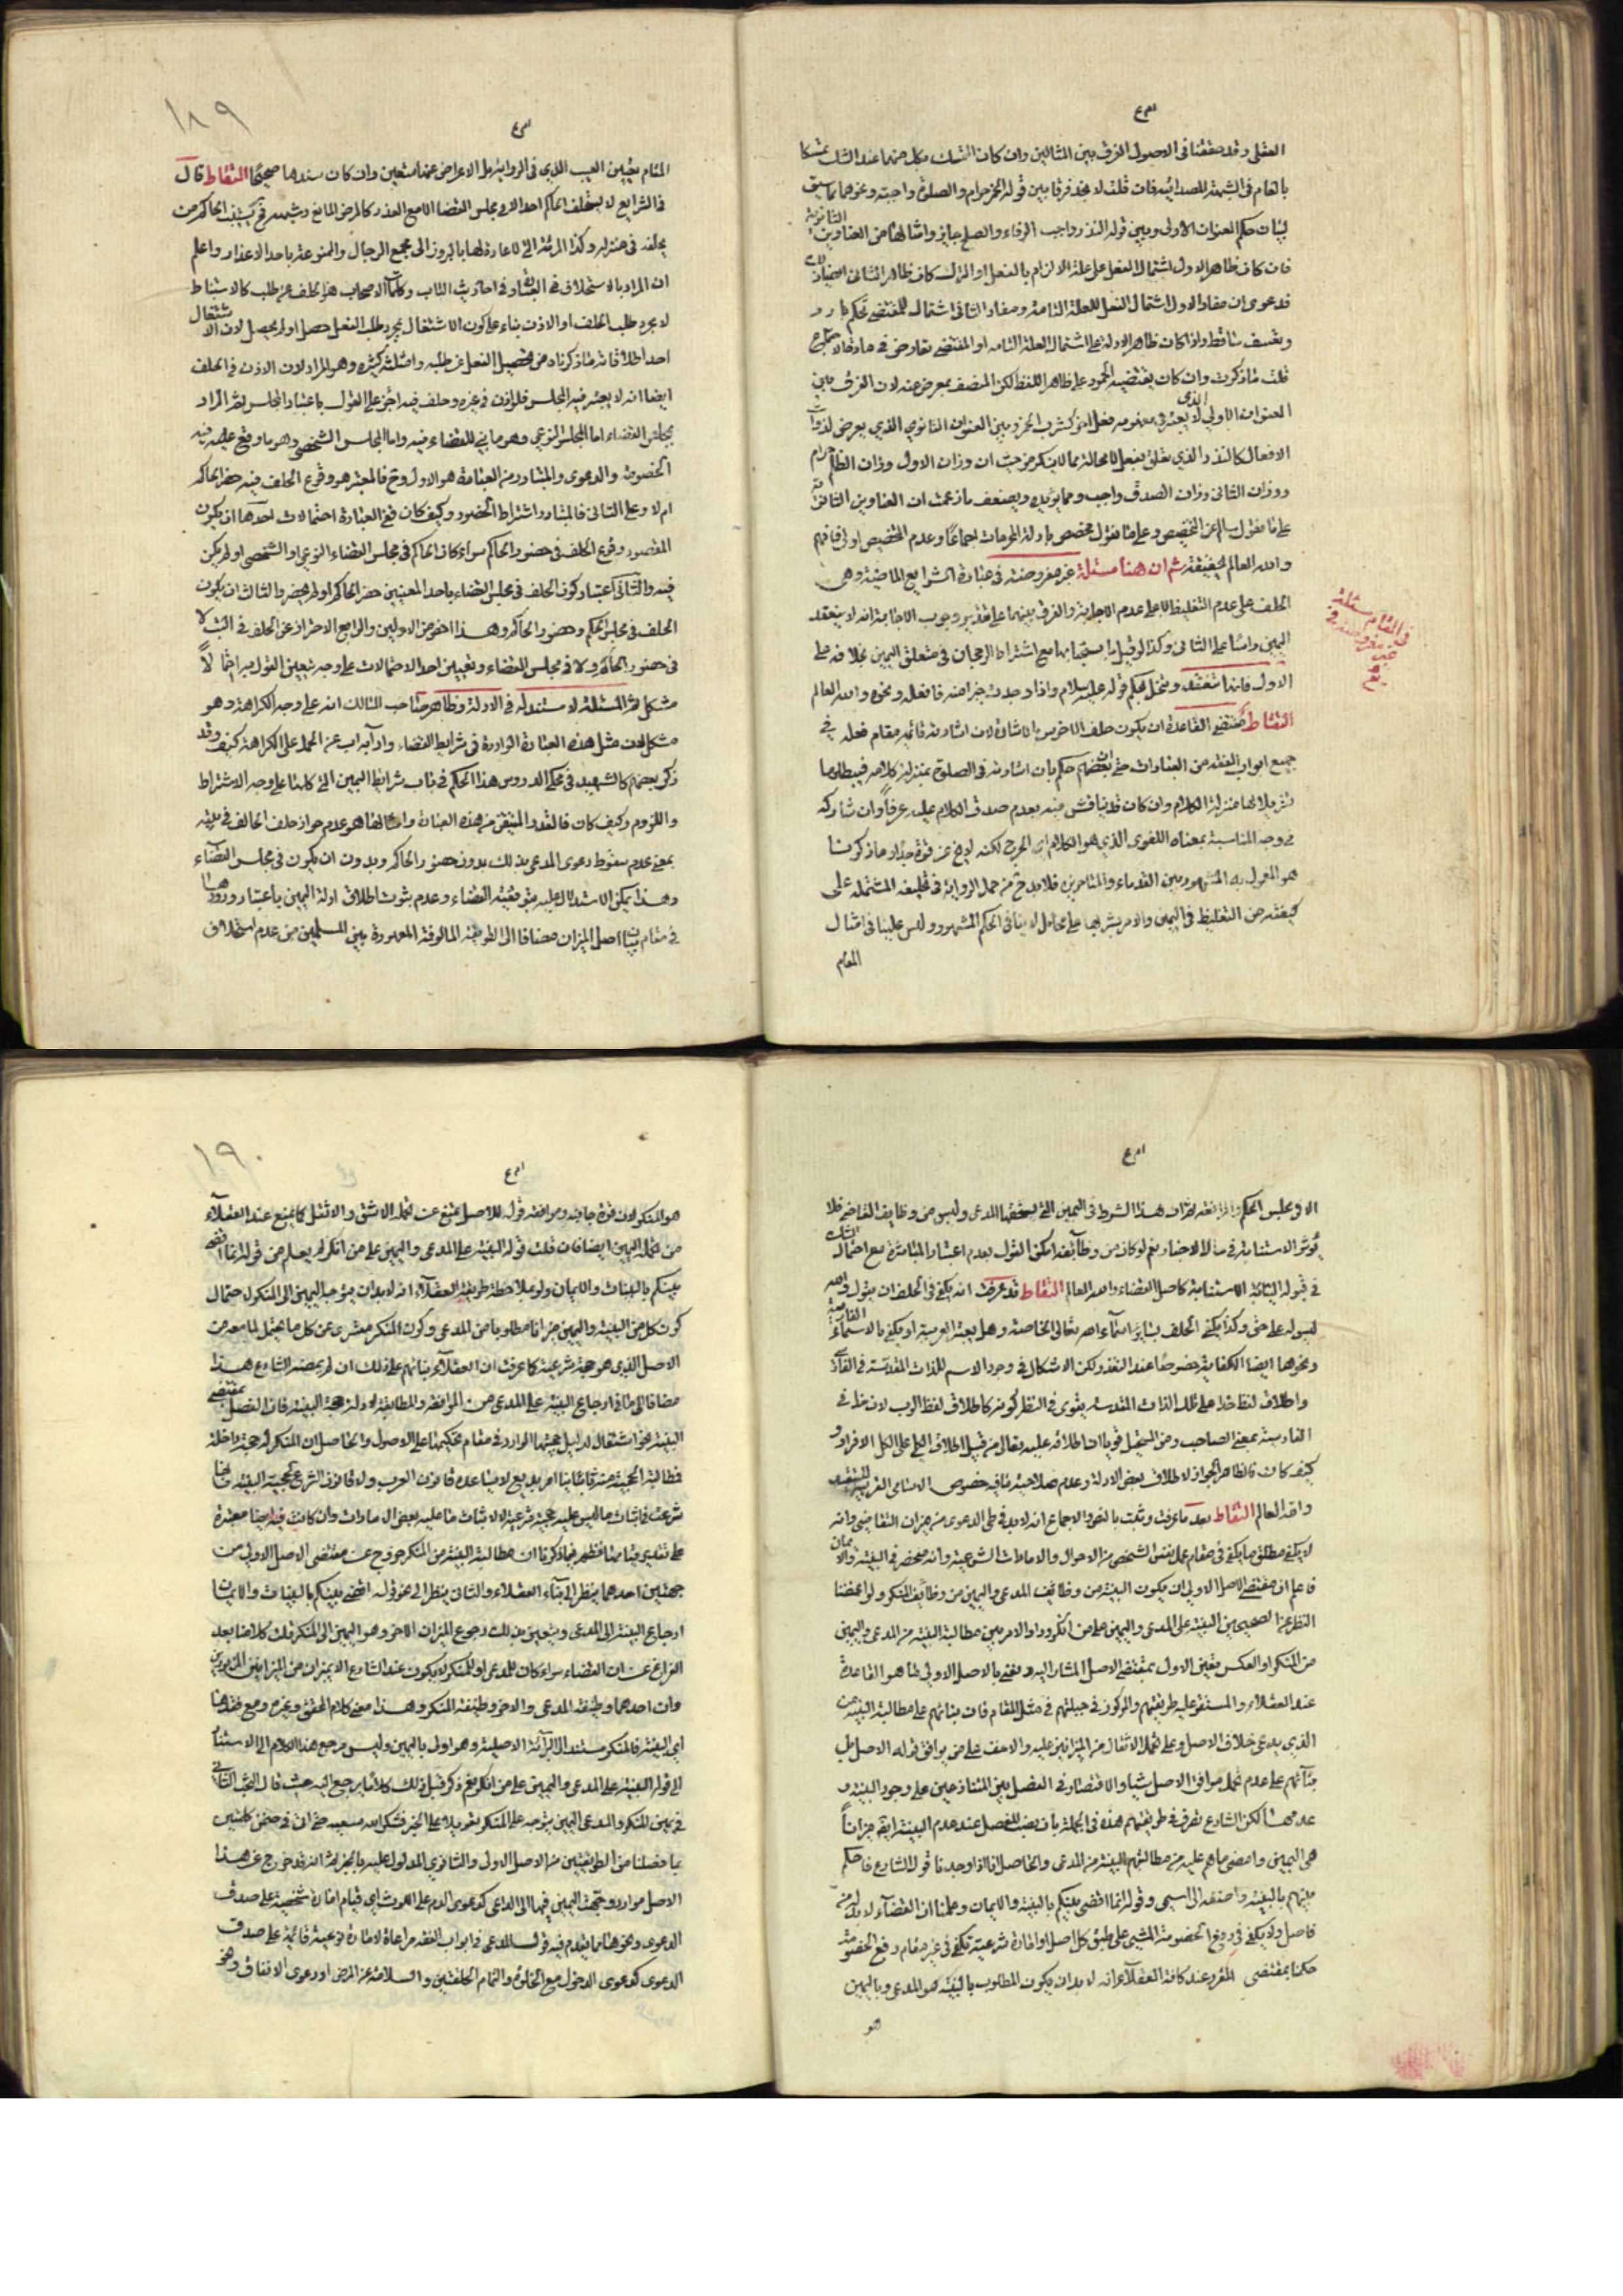 العقلى وقد حققنا فى الاصول الفرق بين المثالين وان كان الشك فى كل منهما عند الشك تمسكا
بالعام فى الشبهة المصداقية فان قلت لا نجد فرقا بين قوله الخمر حرام والصلوة واجبة ونحوهما مما سيق
لبيان حكم العنوان الاولى وبين قوله النذر واجب الوفاء والصلح جايز وامثالها من العناوين الثانوية
فان كان ظاهر الاول اشتمال الفعل على علة الالزام بالفعل او الترك كان ظاهر الثانى ايضا ذلك
فدعوى ان مفاد الاول اشتمال الفعل للعلة التامة ومفاد الثانى اشتماله للمقتضى تحكم بارد
وتعسف ساقط واذا كان ظاهر الادلة على اشتمال العلة التامة او المقتضى تعارض فى مادة الاجتماع
قلت ما ذكرت وان كان يقتضيه الجمود على ظاهر اللفظ لكن المنصف بمعرض عنه لان الفرق بين
العنوان الاولى الذى لا يعتبر فى مفهومه فعل اخر كشرب الخمر وبين العنوان الثانوى الذى يعرض لذوات
الافعال كالنذر الذى يتعلق بفعل لا محالة مما لا ينكر من حيث ان وزان الاول وزان الظلم حرام
ووزان الثانى وزان الصدق واجب ومما يؤيده ويضعف ما زعمت ان العناوين الثانوية
على ما نقول سالم عن التخصيص وعلى ما تقول مخصص بادلة المحرمات اجماعا وعدم التخصيص اولى فافهم
والله العالم بحقيقة ثم ان هنا مسئلة غير معروضة فى عبادة الشرايع الماضية وهى
فى المقام مسئلة
غير معروضة فى
الحلف على عدم التغليظ لا على عدم الاجابة والفرق بينهما على تقدير وجوب الاجابة انه لا ينعقد
اليمين راسا على الثانى وكذا لو قيل باستحبابها مع اشتراط الرجحان فى متعلق اليمين بخلافه على
الاول فانها تنعقد وتنحل بحكم قوله عليه السلام واذا وجدت خيرا منه فافعله ونحوه والله العالم
التقاط مقتضى القاعدة ان يكون حلف الاخرس بالاشارة لان اشارته قائمة مقام فعله فى
جميع ابواب الفقه من العبادات حتى ان بعضهم حكم بان اشارته فى الصلوة بمنزلة كلامه فيبطلوها
تنزيلا لها منزلة الكلام وان كان قد يناقش فيه بعدم صدق الكلام عليه عرفا وان شاركه
فى وجه المناسبة بمعناه اللغوى الذى هو الكلام اى الجرح لكنه لا يخ عن قوة جدا وما ذكرنا
هو المعول به المشهور بين القدماء والمتاخرين فلا بد ح من حمل الرواية فى تحليفه المشتملة على
كيفية من التغليظ فى اليمين والامر بشربها على محامل لا ينافى الحكم المشهور وليس علينا فى امثال
المقام
١٨٩
المقام تعيين العيب الذى فى الرواية بل الاعراض عنها متعين وان كان سندها صحيحا التقاط قال
فى الشرايع لا يستحلف الحاكم احدا الا فى مجلس القضا الا مع العذر كالمرض المانع وشبهه فح يستنيب الحاكم من
يحلفه فى منزله وكذا المرئة التى لا عادة لها بالبروز الى مجمع الرجال والممنوعة باحد الاعذار واعلم
ان المراد بالاستحلاف فى العبارة وفى احاديث الباب وكلمات الاصحاب هو الحلف عن طلب كالاستنباط
لا مجرد طلب الحلف او الاذن بناء على كون الاستفعال مجرد طلب الفعل حصل او لم يحصل لان الاستفعال
احد اطلاقاته ما ذكرناه من تحصيل الفعل عن طلبه وامثلته كثيرة وهو المراد لان الاذن فى الحلف
ايضا انه لا يعتبر فيه المجلس فلو اذن فى غيره وحلف فيه اجزء على القول باعتبار المجلس ثم المراد
بمجلس القضاء اما المجلس النوعى وهو ما بنى للقضاء فيه واما المجلس الشخصى وهو ما وقع عليه فيه
الخصومة والدعوى والمتبادر من العبارة هو الاول وح فالمعتبر هو وقوع الحلف فيه حضر الحاكم
ام لا وعلى الثانى فالمتبادر اشتراط الحضور وكيف كان ففى العبارة احتمالات احدها ان يكون
المقصود وقوع الحلف فى حضور الحاكم سواء كان الحاكم فى مجلس القضاء النوعى او الشخصى او لم يكن
فيه والثانى اعتبار كون الحلف فى مجلس القضاء باحد المعنيين حضر الحاكم او لم يحضر والثالث ان يكون
الحلف فى مجلس الحكم وحضور الحاكم وهذا اخص من الاولين والرابع الاحتراز عن الحلف فى البيت لا
فى حضور الحاكم ولا فى مجلس القضاء وتعيين احد الاحتمالات على وجه يتعين القول به
مشكل ثم المسئلة لا مستند له فى الادلة وظاهر صاحب المسالك انه على وجه الكراهة وهو
مشكل لان مثل هذه العبارة الواردة فى شرايط القضاء وادآبه اب عن الحمل على الكراهة كيف وقد
ذكر بعضهم كالشهيد فى محكى الدروس هذا الحكم فى باب شرايط اليمين التى كلها على وجه الاشتراط
واللزوم وكيف كان فالقدر المتيقن من هذه العبارة وامثالها هو عدم جواز حلف الحالف فى بيته
بمعنى عدم سقوط دعوى المدعى بذلك بدون حضور الحاكم وبدون ان يكون فى مجلس القضاء
وهذا يمكن الاستدلال عليه بتوقيفية القضاء وعدم ثبوت اطلاق ادلة اليمين باعتبار ورودها
فى مقام بيان اصل الميزان مضافا الى الطريقة المالوفة المعهودة بين المسلمين من عدم استحلاف
الا فى مجلس الحكم والمرافعة ثم ان هذا الشرط فى اليمين التى يستحقها المدعى وليس من وظايف القاضى فلا
يؤثر الاستنابة فى حال الاختيار نعم لو كان من وظائفه امكن القول بعدم اعتبار المباشرة مع احتمال الشك
فى قبوله النيابة الاستنابة كاصل القضاء والله العالم التقاط قد عرفت انه يكفى فى الحلف ان يقول والله
ليس له على حق وكذا يكفى الحلف بساير اسماء الله تعالى الخاصة وهل يعتبر العربية او يكفى بالاسماء الفارسية
ونحوها ايضا الكفاية خصوصا عند التعذر ولكن الاشكال فى وجود الاسم للذات المقدسة فى الفارسى
واطلاق لفظ خدا على تلك الذات المقدسة يقوى فى النظر كونه كاطلاق لفظ الرب لان خدا فى
الفارسية بمعنى الصاحب ومن المحتمل قويا ان اطلاقه عليه تعالى من قبيل اطلاق الكلى على اكمل الافراد و
كيف كان فالظاهر الجواز لاطلاق بعض الادلة وعدم صلاحية ما فيه خصوص الاسامى العربية للتقييد
والله العالم التقاط بعد ما عرفت وثبت بالنص والاجماع انه لا بد فى طى الدعوى من ميزان التقاضى وانه
لا يكفى مطلق ما يكفى فى مقام عمل نفس الشخص من الاصول والامارات الشرعية وانه منحصر فى البينة والايمان
فاعلم ان مقتضى الاصل الاولى ان يكون البينة من وظائف المدعى واليمين من وظائف المنكر ولو اغمضنا
النظر عن الصحيحين البينة على المدعى واليمين على من انكر ودار الامر بين مطالبة البينة من المدعى واليمين
من المنكر او العكس تعين الاول بمقتضى الاصل المشار اليه ونعنى بالاصل الاولى ما هو القاعدة
عند العقلاء والمستقر عليه طريقتهم والمركوز فى جبلتهم فى مثل المقام فان بنائهم على مطالبة البينة من
الذى يدعى خلاف الاصل وعلى تحمل الاثقال من الميزانين عليه والاخف على من يوافق قوله الاصل بل
بنآئهم على عدم تحمل موافق الاصل شيئا والاقتصار فى الفصل بين المتنازعين على وجود البينة و
عدمها لكن الشارع تصرف فى طريقتهم هذه فى الجملة بان يصب للفصل عند عدم البينة ايضا ميزانا
هى اليمين وامضى ما هم عليه من مطالبتهم البينة من المدعى والحاصل انا اذا وجدنا قول الشارع فاحكم
بينهم بالبينة واضفهم الى اسمى وقوله انما اقضى بينكم بالبينة والايمان وعلمنا ان القضاء لا بد له من
فاصل ولا يكفى فى رفع الخصومة المشى على طبق كل اصل او امارة شرعية يكفى فى غير مقام رفع الخصومة
حكمنا بمقتضى المقرر عند كافة العقلاء انه لا بد ان يكون المطلوب بالبينة هو المدعى وباليمين
هو
١٩٠
هو المنكر لان قوة جانبه وموافقة قوله للاصل يمتنع عن تحمله الاشق والاثقل كما يمنع عند العقلاء
من تحمله اليمين ايضا فان قلت قوله البينة على المدعى واليمين على من انكر لم يعلم من قوله انما اقضى
بينكم بالبينات والايمان ولو بملاحظة طريقة العقلاء انه لا بد ان يتوجه اليمين الى المنكر لاحتمال
كون كل من البينة واليمين ميزانا مطلوبا من المدعى وكون المنكر معرى عن كل ما يحتمل لما معه من
الاصل الذى هو حجة شرعية كما عرفت ان العقلاء بنائهم على ذلك ان لم يمضه الشارع هذا
مضافا الى ما فى ارجاع البينة على المدعى من الموافقة والمطابقة لادلة حجية البينة فان الفصل بمقتضى
البينة نحو اشتغال لدليل حجيتها الوارد فى مقام تحكيمها على الاصول والحاصل ان المنكر له حجة داخلة
فطالبة الحجية منه ثانيا امر بديع لا يساعده قانون العرب ولا قانون الشرع لحجية البينة
شرعت لاثبات ما ليس عليه حجية شرعية لا لاثبات ما عليه بعض الامارات وان كانت فيه ايضا معتبرة
على تقدير قيامها فظهر مما ذكرنا ان مطالبة البينة من المنكر خروج عن مقتضى الاصل الاولى من
جهتين احدهما ينظر الى بناء العقلاء والثانى ينظر الى نحو قوله اقضى بينكم بالبينات والايمان
ارجاع البينة الى المدعى ويتعين بذلك رجوع الميزان الاخر وهو اليمين الى المنكر قلت كلامنا بعد
الفراغ عن ان القضاء سواء كان للمدعى او للمنكر لا يكون عند الشارع الا بميزان من الميزانين المزبورين
وان احدهما وظيفة المدعى والاخر وظيفة المنكر وهذا معنى كلام المحقق وغيره ومع فقدها
اى البينة فالمنكر مستند الى البرائة الاصلية وهو اولى باليمين وليس مرجع هذا الكلام الى الاستناد
الى قوله البينة على المدعى واليمين على من انكر نعم ذكر قبل ذلك كلاما يرجع اليه حيث قال البحث الثانى
فى يمين المنكر والمدعى اليمين يتوجه على المنكر تعويلا على الخبر فشكر الله سعيه حتى ان فى ضمن كلمتين
ما فصلنا من الطريقتين من الاصل الاولى والثانوى المدلول عليه بالخبر ثم انه قد خرج عن هذا
الاصل موارد وجهت اليمين فيها الى المدعى كدعوى الدم على اللوث اى قيام امارة شخصية على صدق
الدعوى ونحوها مما يقدم فيه قول المدعى فى ابواب الفقه مراعاة لامارة نوعية قائمة على صدق
الدعوى كدعوى الدخول مع الخلوة والتمام الحلفتين والسلامة عن المرض او دعوى الانفاق ونحو